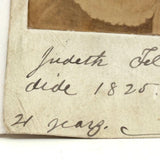 Judeth Fel
dide 1825.
21 yearg.